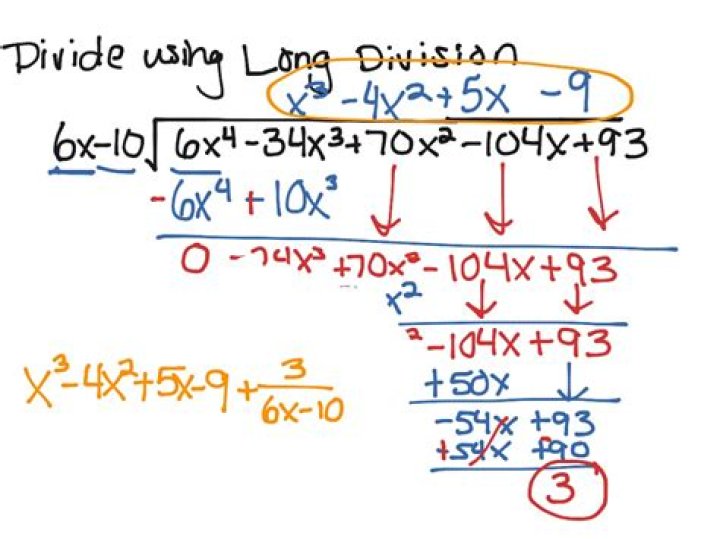 Divide using Long Division
x³ - 4x² + 5x - 9
6x-10 6x⁴ - 34x³ + 70x² - 104x + 93
- 6x⁴ + 10x³
0 + 70x² - 104x + 93
x²
² - 104x + 93
+ 50x
- 54x + 93
+ 54x 90
3
x³ - 4x² + 5x - 9 + 3
6x-10